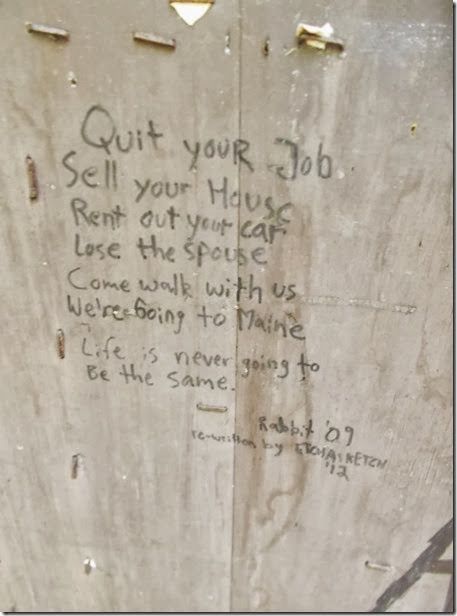 Quit youR Job
Sell your House
Rent out your car
Lose the spouse
Come walk with us
We're Going to Maine
Life is never going to
Be the same.
Rabbit '09
re-written by ETCHASKETCH
'12